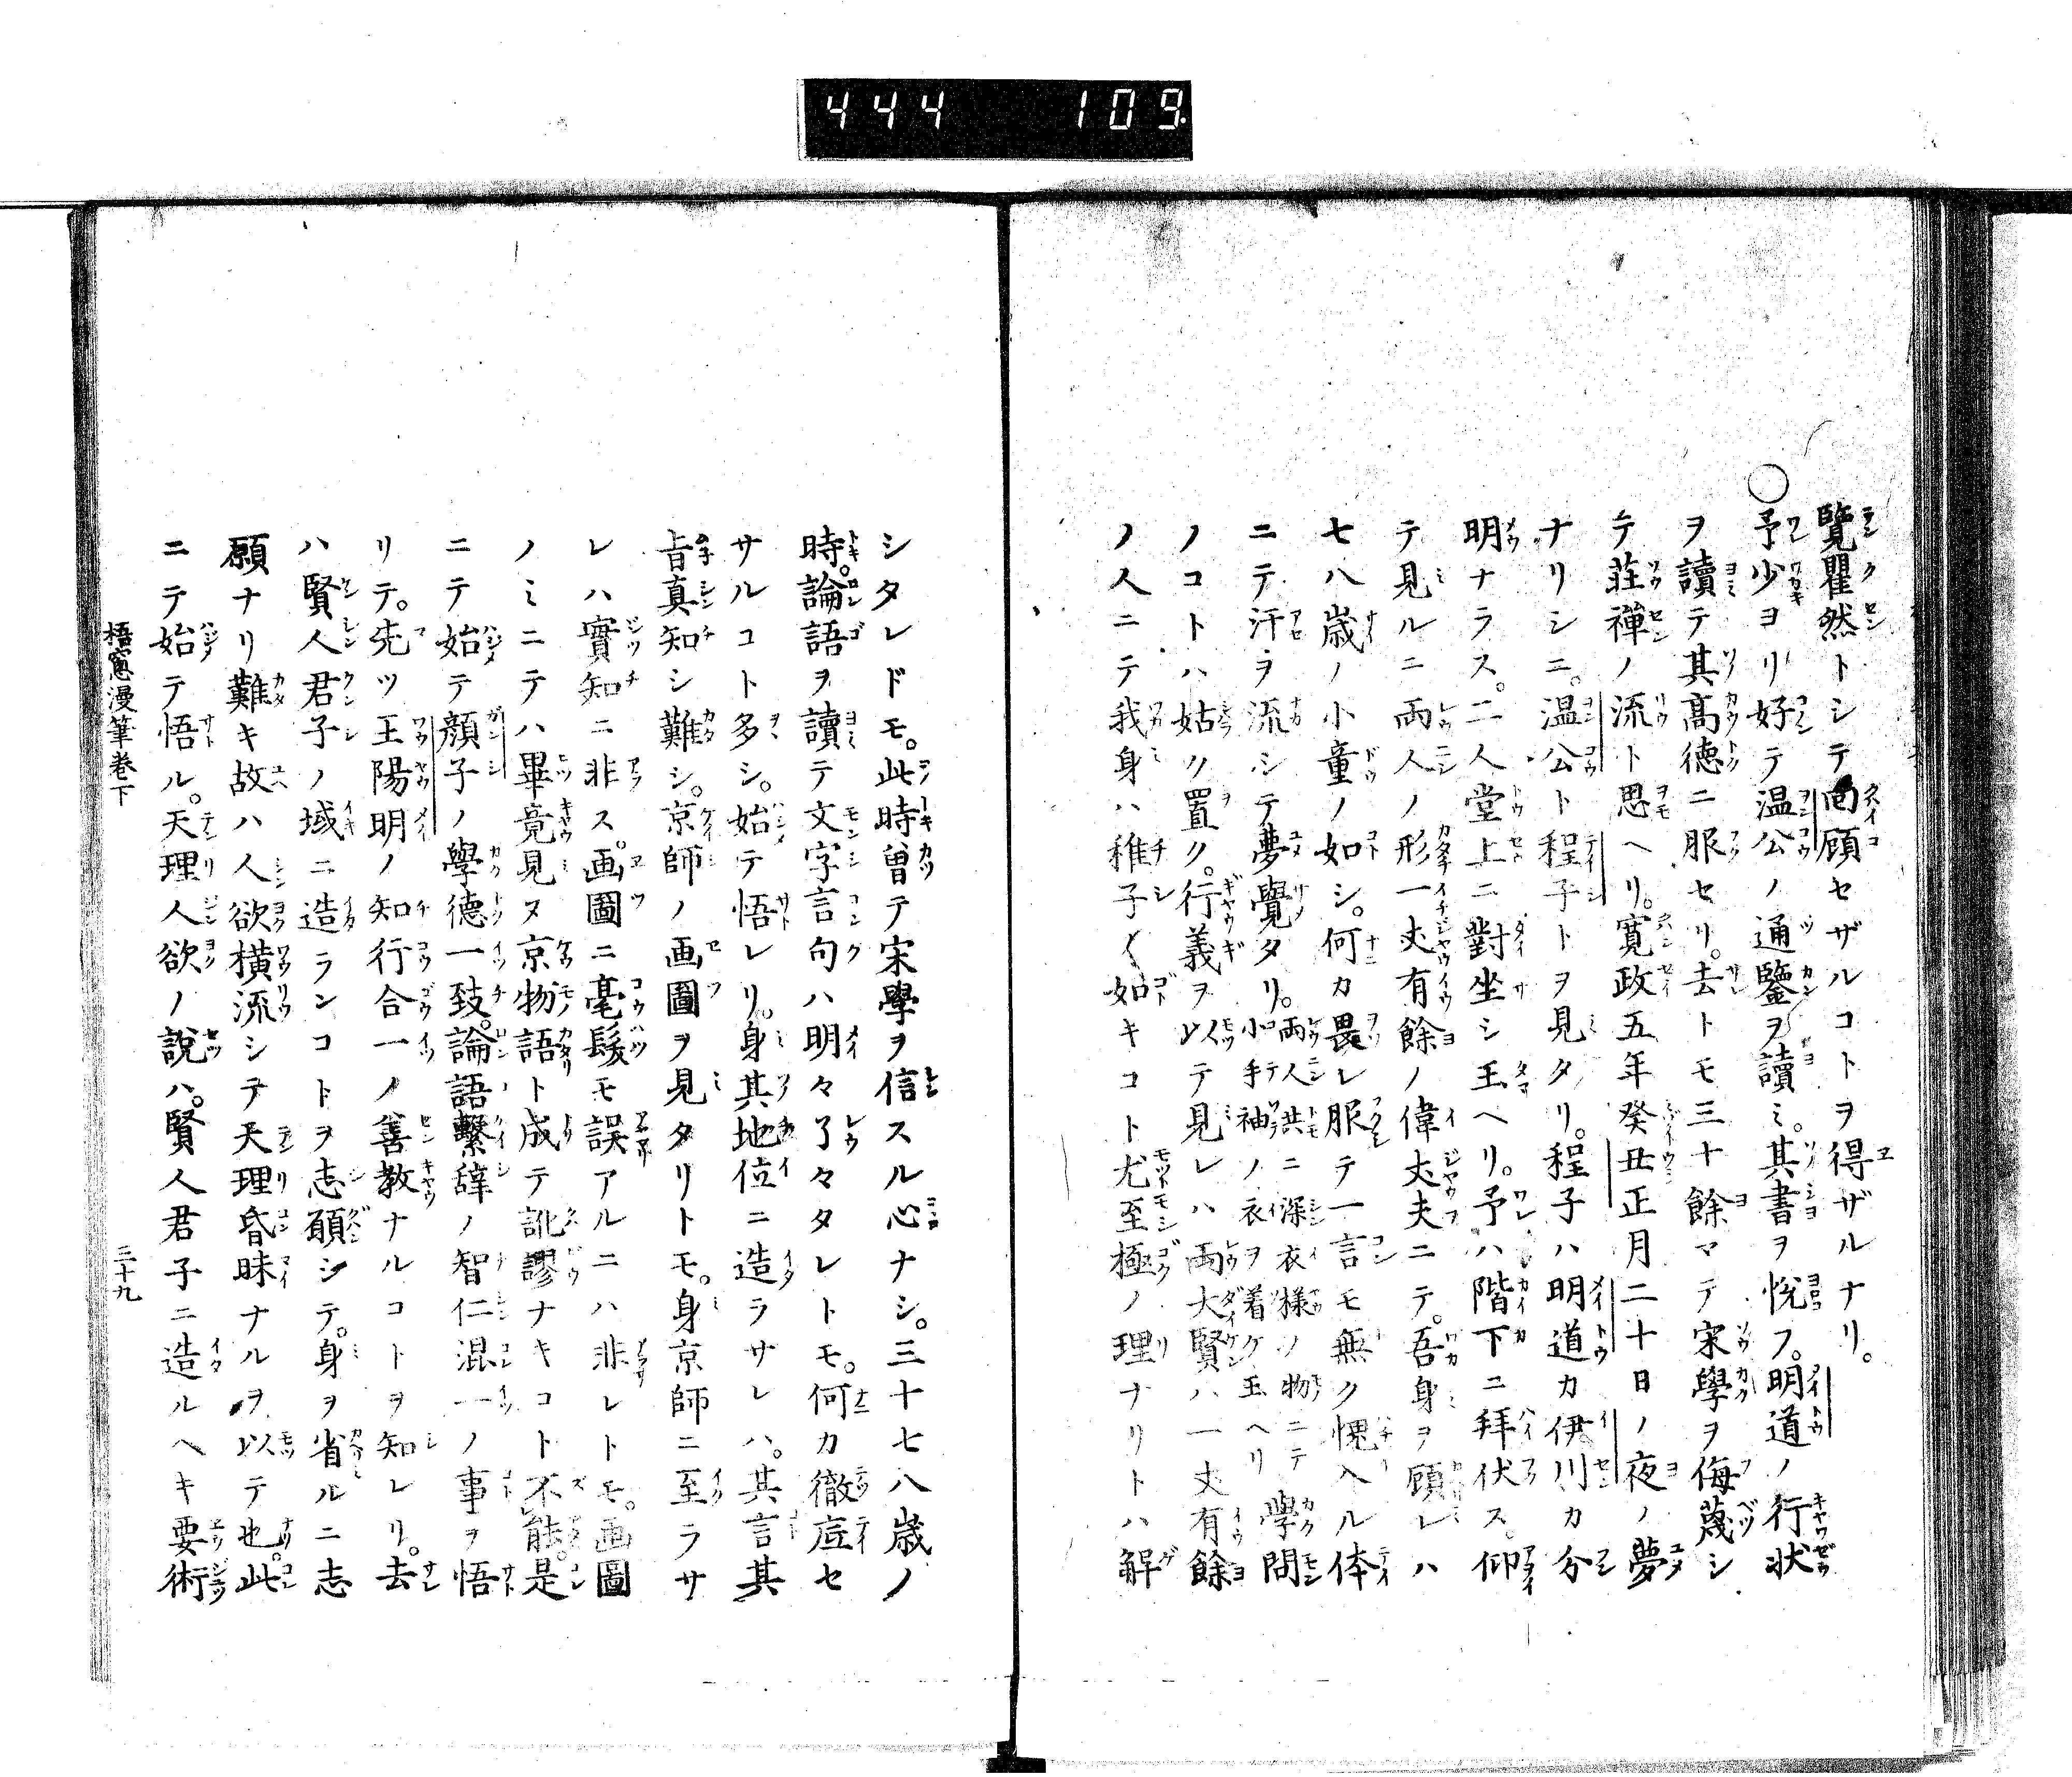 444 109
覽瞿然トシテ回顧セザルコトヲ得ザルナリ。
○予少ヨリ好テ温公ノ通鑒ヲ讀ミ。其書ヲ悅フ。明道ノ行状
ヲ讀テ其高徳ニ服セリ。去トモ三十餘マテ宋學ヲ侮蔑シ
テ荘禪ノ流ト思ヘリ。寛政五年癸丑正月二十日ノ夜ノ夢
ナリシニ。温公ト程子トヲ見タリ。程子ハ明道カ伊川カ分
明ナラス。二人堂上ニ對坐シ玉ヘリ。予ハ階下ニ拜伏ス。仰
テ見ルニ両人ノ形一丈有餘ノ偉丈夫ニテ。吾身ヲ顧レハ
七八歳ノ小童ノ如シ。何カ畏レ服テ一言モ無ク愧入ル体
ニテ汗ヲ流シテ夢覺タリ。両人共ニ深衣様ノ物ニテ小手袖ノ衣ヲ着ケ玉ヘリ學問
ノコトハ姑ク置ク。行義ヲ以テ見レハ両大賢ハ一丈有餘
ノ人ニテ我身ハ稚子ノ如キコト尤至極ノ理ナリトハ解
シタレドモ。此時曽テ宋學ヲ信スル心ナシ。三十七八歳ノ
時。論語ヲ讀テ文字言句ハ明々了々タレトモ。何カ徹底セ
サルコト多シ。始テ悟レリ。身其地位ニ造ラサレハ。其言其
旨真知シ難シ。京師ノ画圖ヲ見タリトモ。身京師ニ至ラサ
レハ實知ニ非ス。画圖ニ毫髮モ誤アルニハ非レトモ。画圖
ノミニテハ畢竟見ヌ京物語ト成テ訛謬ナキコト不能。是
ニテ始テ顔子ノ學德一致。論語繫辞ノ智仁混一ノ事ヲ悟
リテ。先ツ王陽明ノ知行合一ノ善教ナルコトヲ知レリ。去
ハ賢人君子ノ域ニ造ランコトヲ志願シテ。身ヲ省ルニ志
願ナリ難キ故ハ人欲横流シテ天理昏昧ナルヲ以テ也。此
ニテ始テ悟ル。天理人欲ノ説ハ。賢人君子ニ造ルヘキ要術
梧窓漫筆卷下 三十九